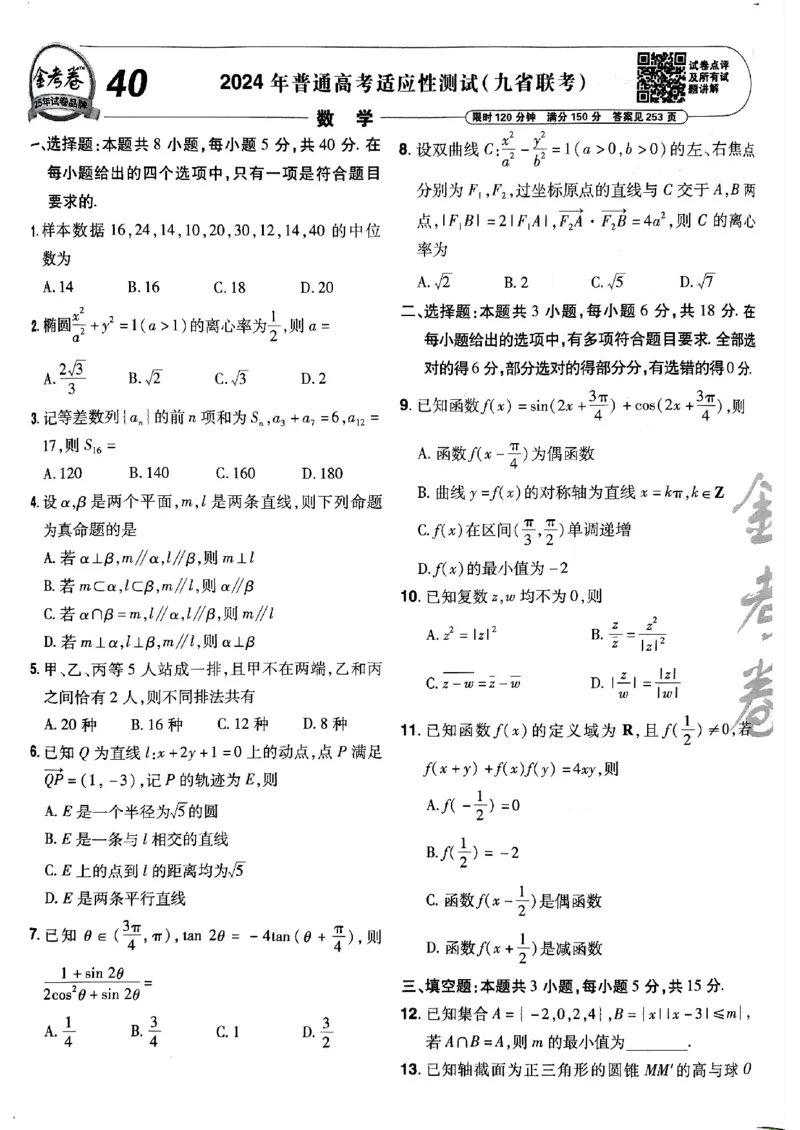 金考卷
25年试卷品牌
40
2024年普通高考适应性测试(九省联考)
试卷点评
及所有试
题讲解
数 学
限时120分钟 满分150分 答案见253页
一、选择题:本题共8小题,每小题5分,共40分.在
每小题给出的四个选项中,只有一项是符合题目
要求的.
1.样本数据16,24,14,10,20,30,12,14,40的中位
数为
A.14 B.16 C.18 D.20
2.椭圆x²/a²+y²=1(a>1)的离心率为1/2,则a=
A.2√3/3 B.√2 C.√3 D.2
3.记等差数列{aₙ}的前n项和为Sₙ,a₃+a₇=6,a₁₂=
17,则S₁₆=
A.120 B.140 C.160 D.180
4.设α,β是两个平面,m,l是两条直线,则下列命题
为真命题的是
A.若α⊥β,m∥α,l∥β,则m⊥l
B.若m⊂α,l⊂β,m∥l,则α∥β
C.若α∩β=m,l∥α,l∥β,则m∥l
D.若m⊥α,l⊥β,m∥l,则α⊥β
5.甲、乙、丙等5人站成一排,且甲不在两端,乙和丙
之间恰有2人,则不同排法共有
A.20种 B.16种 C.12种 D.8种
6.已知Q为直线l:x+2y+1=0上的动点,点P满足
→QP=(1,-3),记P的轨迹为E,则
A.E是一个半径为√5的圆
B.E是一条与l相交的直线
C.E上的点到l的距离均为√5
D.E是两条平行直线
7.已知θ∈(3π/4,π),tan 2θ=-4tan(θ+π/4),则
(1+sin 2θ)/(2cos²θ+sin 2θ)=
A.1/4 B.3/4 C.1 D.3/2
8.设双曲线C:x²/a²-y²/b²=1(a>0,b>0)的左、右焦点
分别为F₁,F₂,过坐标原点的直线与C交于A,B两
点,|F₁B|=2|F₁A|,→F₂A·→F₂B=4a²,则C的离心
率为
A.√2 B.2 C.√5 D.√7
二、选择题:本题共3小题,每小题6分,共18分.在
每小题给出的选项中,有多项符合题目要求.全部选
对的得6分,部分选对的得部分分,有选错的得0分.
9.已知函数f(x)=sin(2x+3π/4)+cos(2x+3π/4),则
A.函数f(x-π/4)为偶函数
B.曲线y=f(x)的对称轴为直线x=kπ,k∈Z
C.f(x)在区间(π/3,π/2)单调递增
D.f(x)的最小值为-2
10.已知复数z,w均不为0,则
A.z²=|z|² B.z/z̄=z²/|z|²
C.z-w̅=z̄-w̄ D.|z/w|=|z|/|w|
11.已知函数f(x)的定义域为R,且f(1/2)≠0,若
f(x+y)+f(x)f(y)=4xy,则
A.f(-1/2)=0
B.f(1/2)=-2
C.函数f(x-1/2)是偶函数
D.函数f(x+1/2)是减函数
三、填空题:本题共3小题,每小题5分,共15分.
12.已知集合A={-2,0,2,4},B={x||x-3|≤m},
若A∩B=A,则m的最小值为______.
13.已知轴截面为正三角形的圆锥MM′的高与球O
金考卷